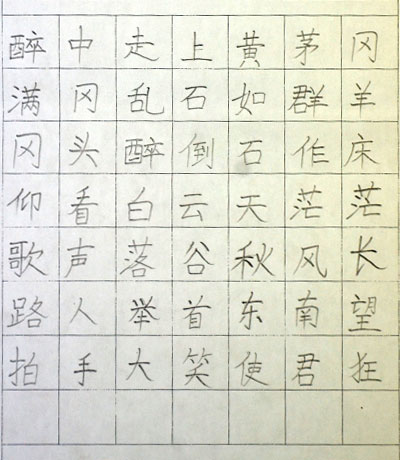 醉中走上黄茅冈
满冈乱石如群羊
冈头醉倒石作床
仰看白云天茫茫
歌声落谷秋风长
路人举首东南望
拍手大笑使君狂